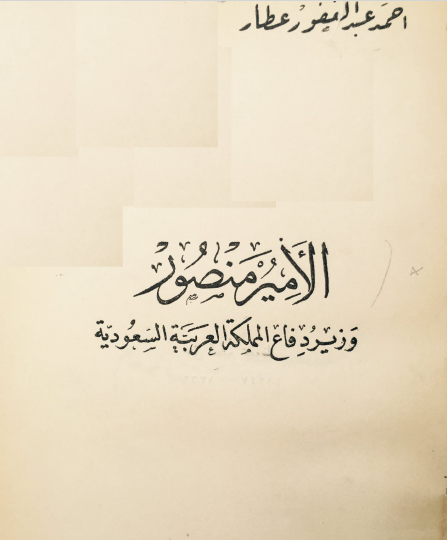 احمد عبد الغفور عطار
الأمير منصور
وزير دفاع المملكة العربية السعودية